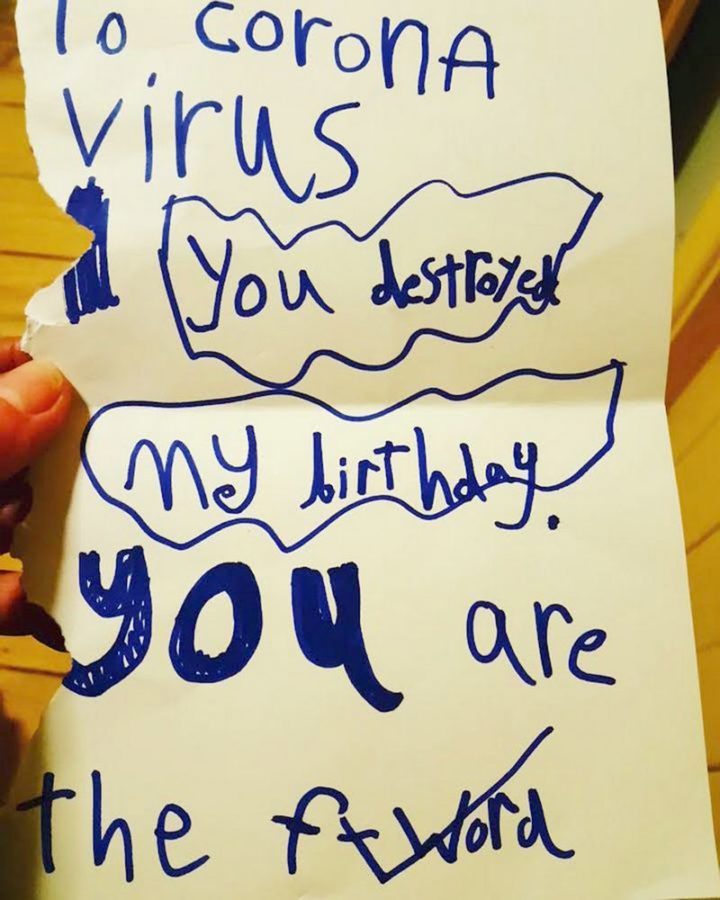 To coronA
virus
You destroyed
my birthday.
you are
the f word